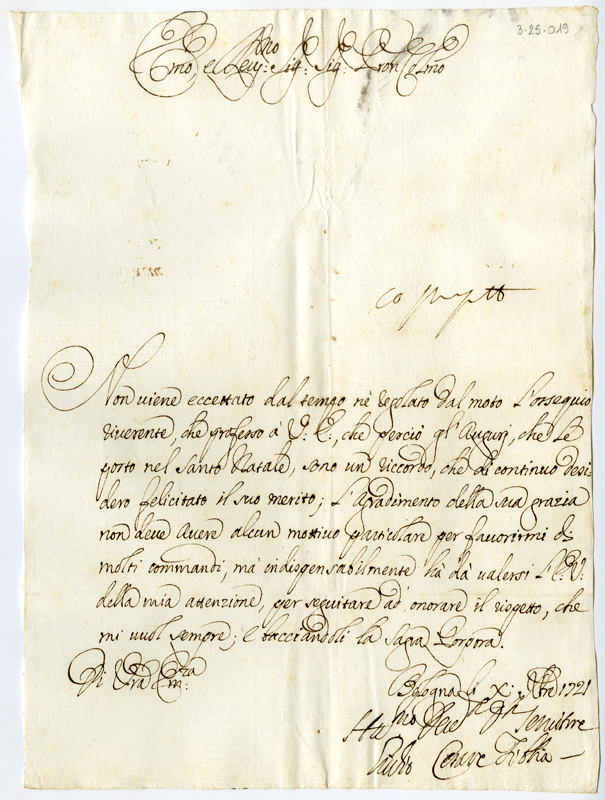 3-25-019
Emo e Rev: Sig: Sig: Pron Colmo
Non viene eccettato dal tempo nè regolato dal moto l'ossequio
riverente, che professo à V: E:, che perciò gl'Auguri, che Le
porto nel Santo Natale, sono un riccordo, che di continuo desi
dero felicitato il suo merito; L'Agradimento della sua grazia
non deve avere alcun mottivo particulare per favorirmi di
molti commandi, mà indispensabilmente hà dà valersi l'E: V:
della mia attenzione, per seguitare ad onorare il rispetto, che
mi vuol sempre; E bacciandoli la Sagra Porpora.
Di Vra Emza
Bologna li X: Xbre 1721
Servitore
Giulio Cesare